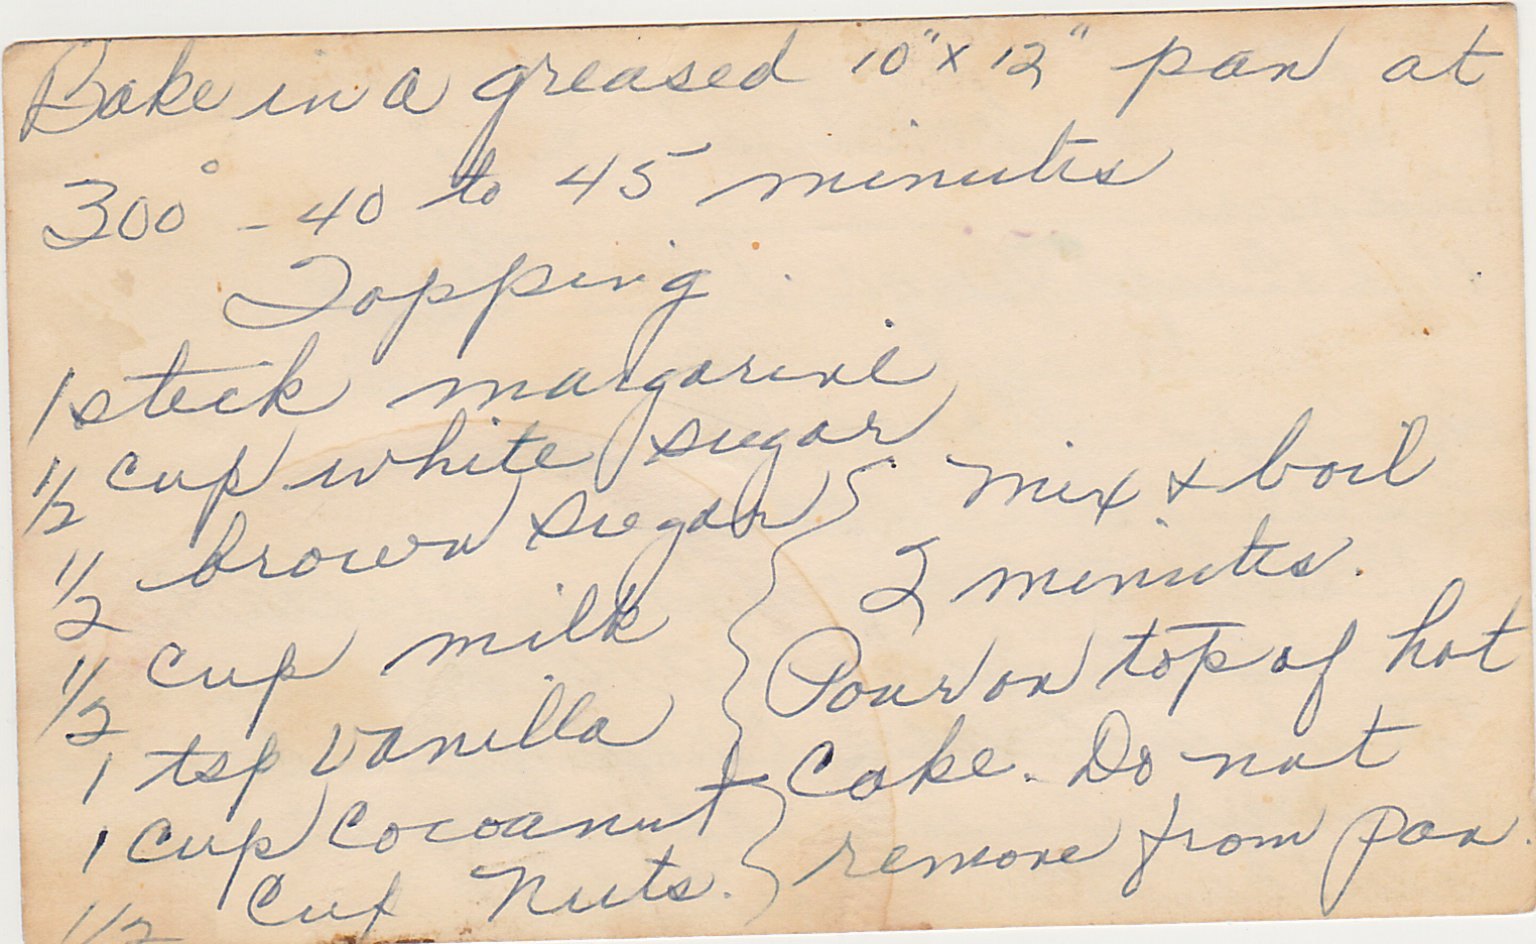 Bake in a greased 10" x 12" pan at
300° - 40 to 45 minutes
Topping
1 stick margarine
1/2 cup white sugar
1/2 brown sugar
1/2 cup milk
1 tsp vanilla
1 cup cocoanut
1/2 cup nuts.
mix & boil
2 minutes.
Pour on top of hot
Cake. Do not
remove from pan.